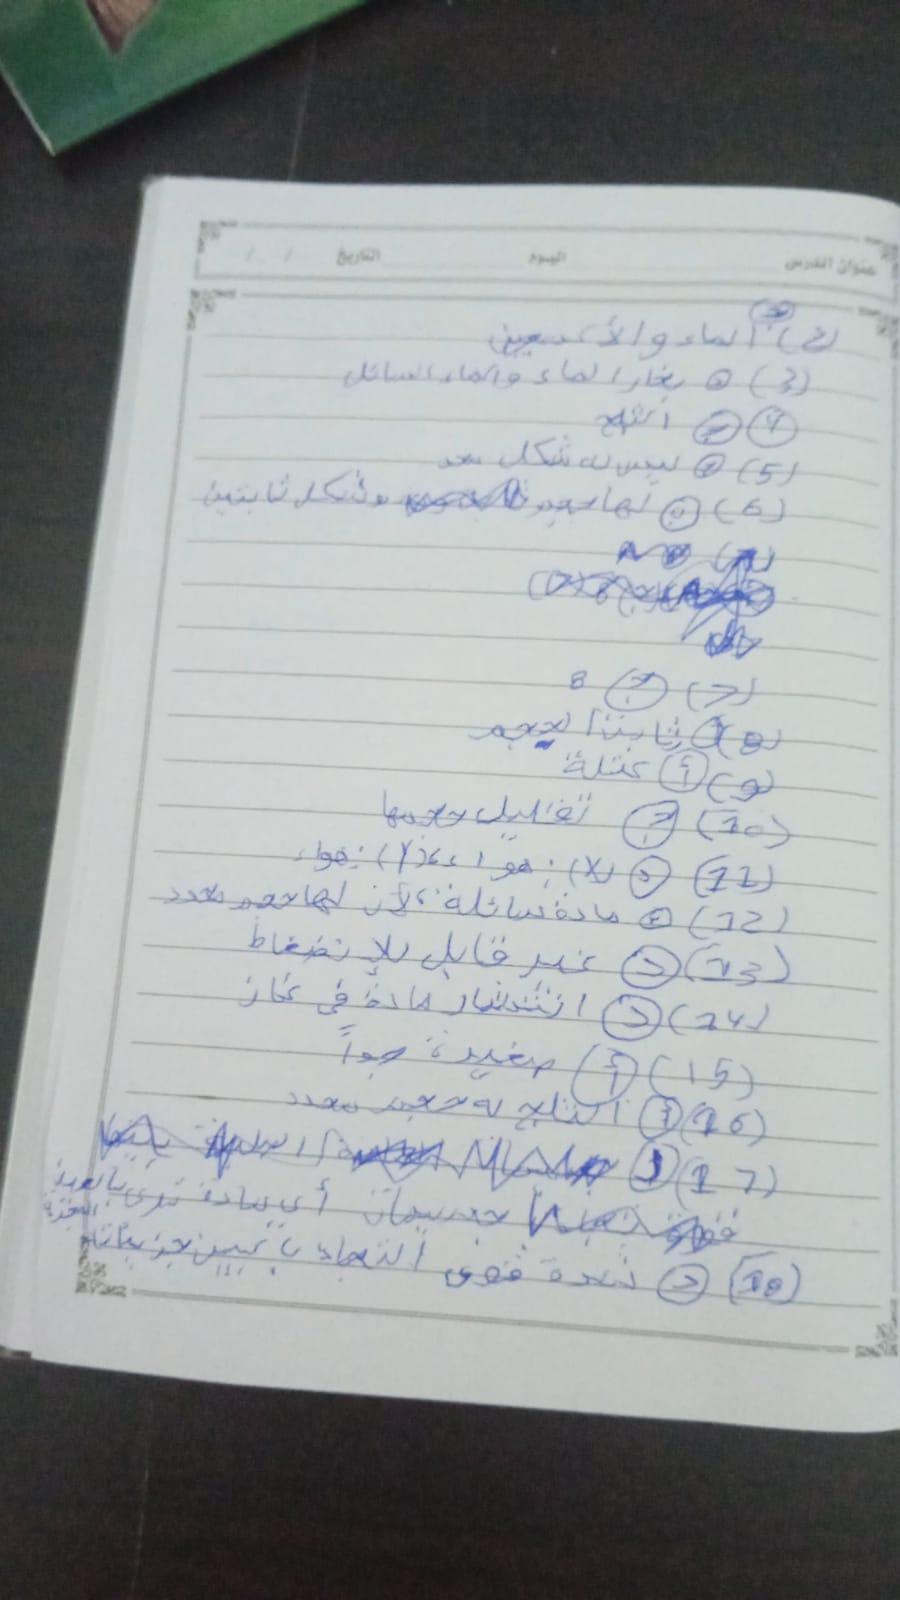 عنوان الدرس اليوم التاريخ / /
(2) الماء والأكسجين
(3) بخار الماء والماء السائل
(4) الثلج
(5) ليس له شكل محدد
(6) لها حجم وشكل ثابتين
(7) ج 8
(8) ثابتة الحجم
(9) أ كتلة
(10) ج تقليل حجمها
(11) د (X): هواء، (Y): هواء
(12) مادة سائلة، لأن لها حجم محدد
(13) د غير قابل للإنضغاط
(14) د انتشار مادة في غاز
(15) أ صغيرة جداً
(16) الثلج له حجم محدد
(17)
جسيمات أي مادة ترى بالعين المجردة
(18) د شدة قوى التجاذب بين جزيئاتها